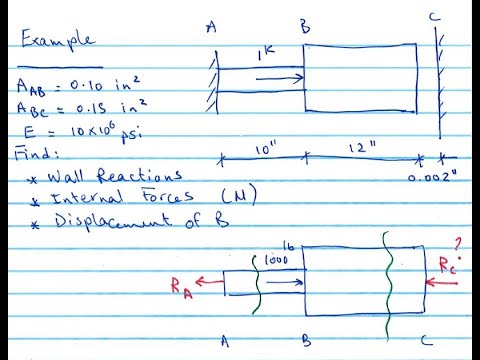 Example
A_AB = 0.10 in²
A_BC = 0.15 in²
E = 10×10⁶ psi
Find:
* Wall Reactions
* Internal Forces (N)
* Displacement of B
A B C
1ᴷ
10" 12" 0.002"
1000 lb
R_A R_C ?
A B C